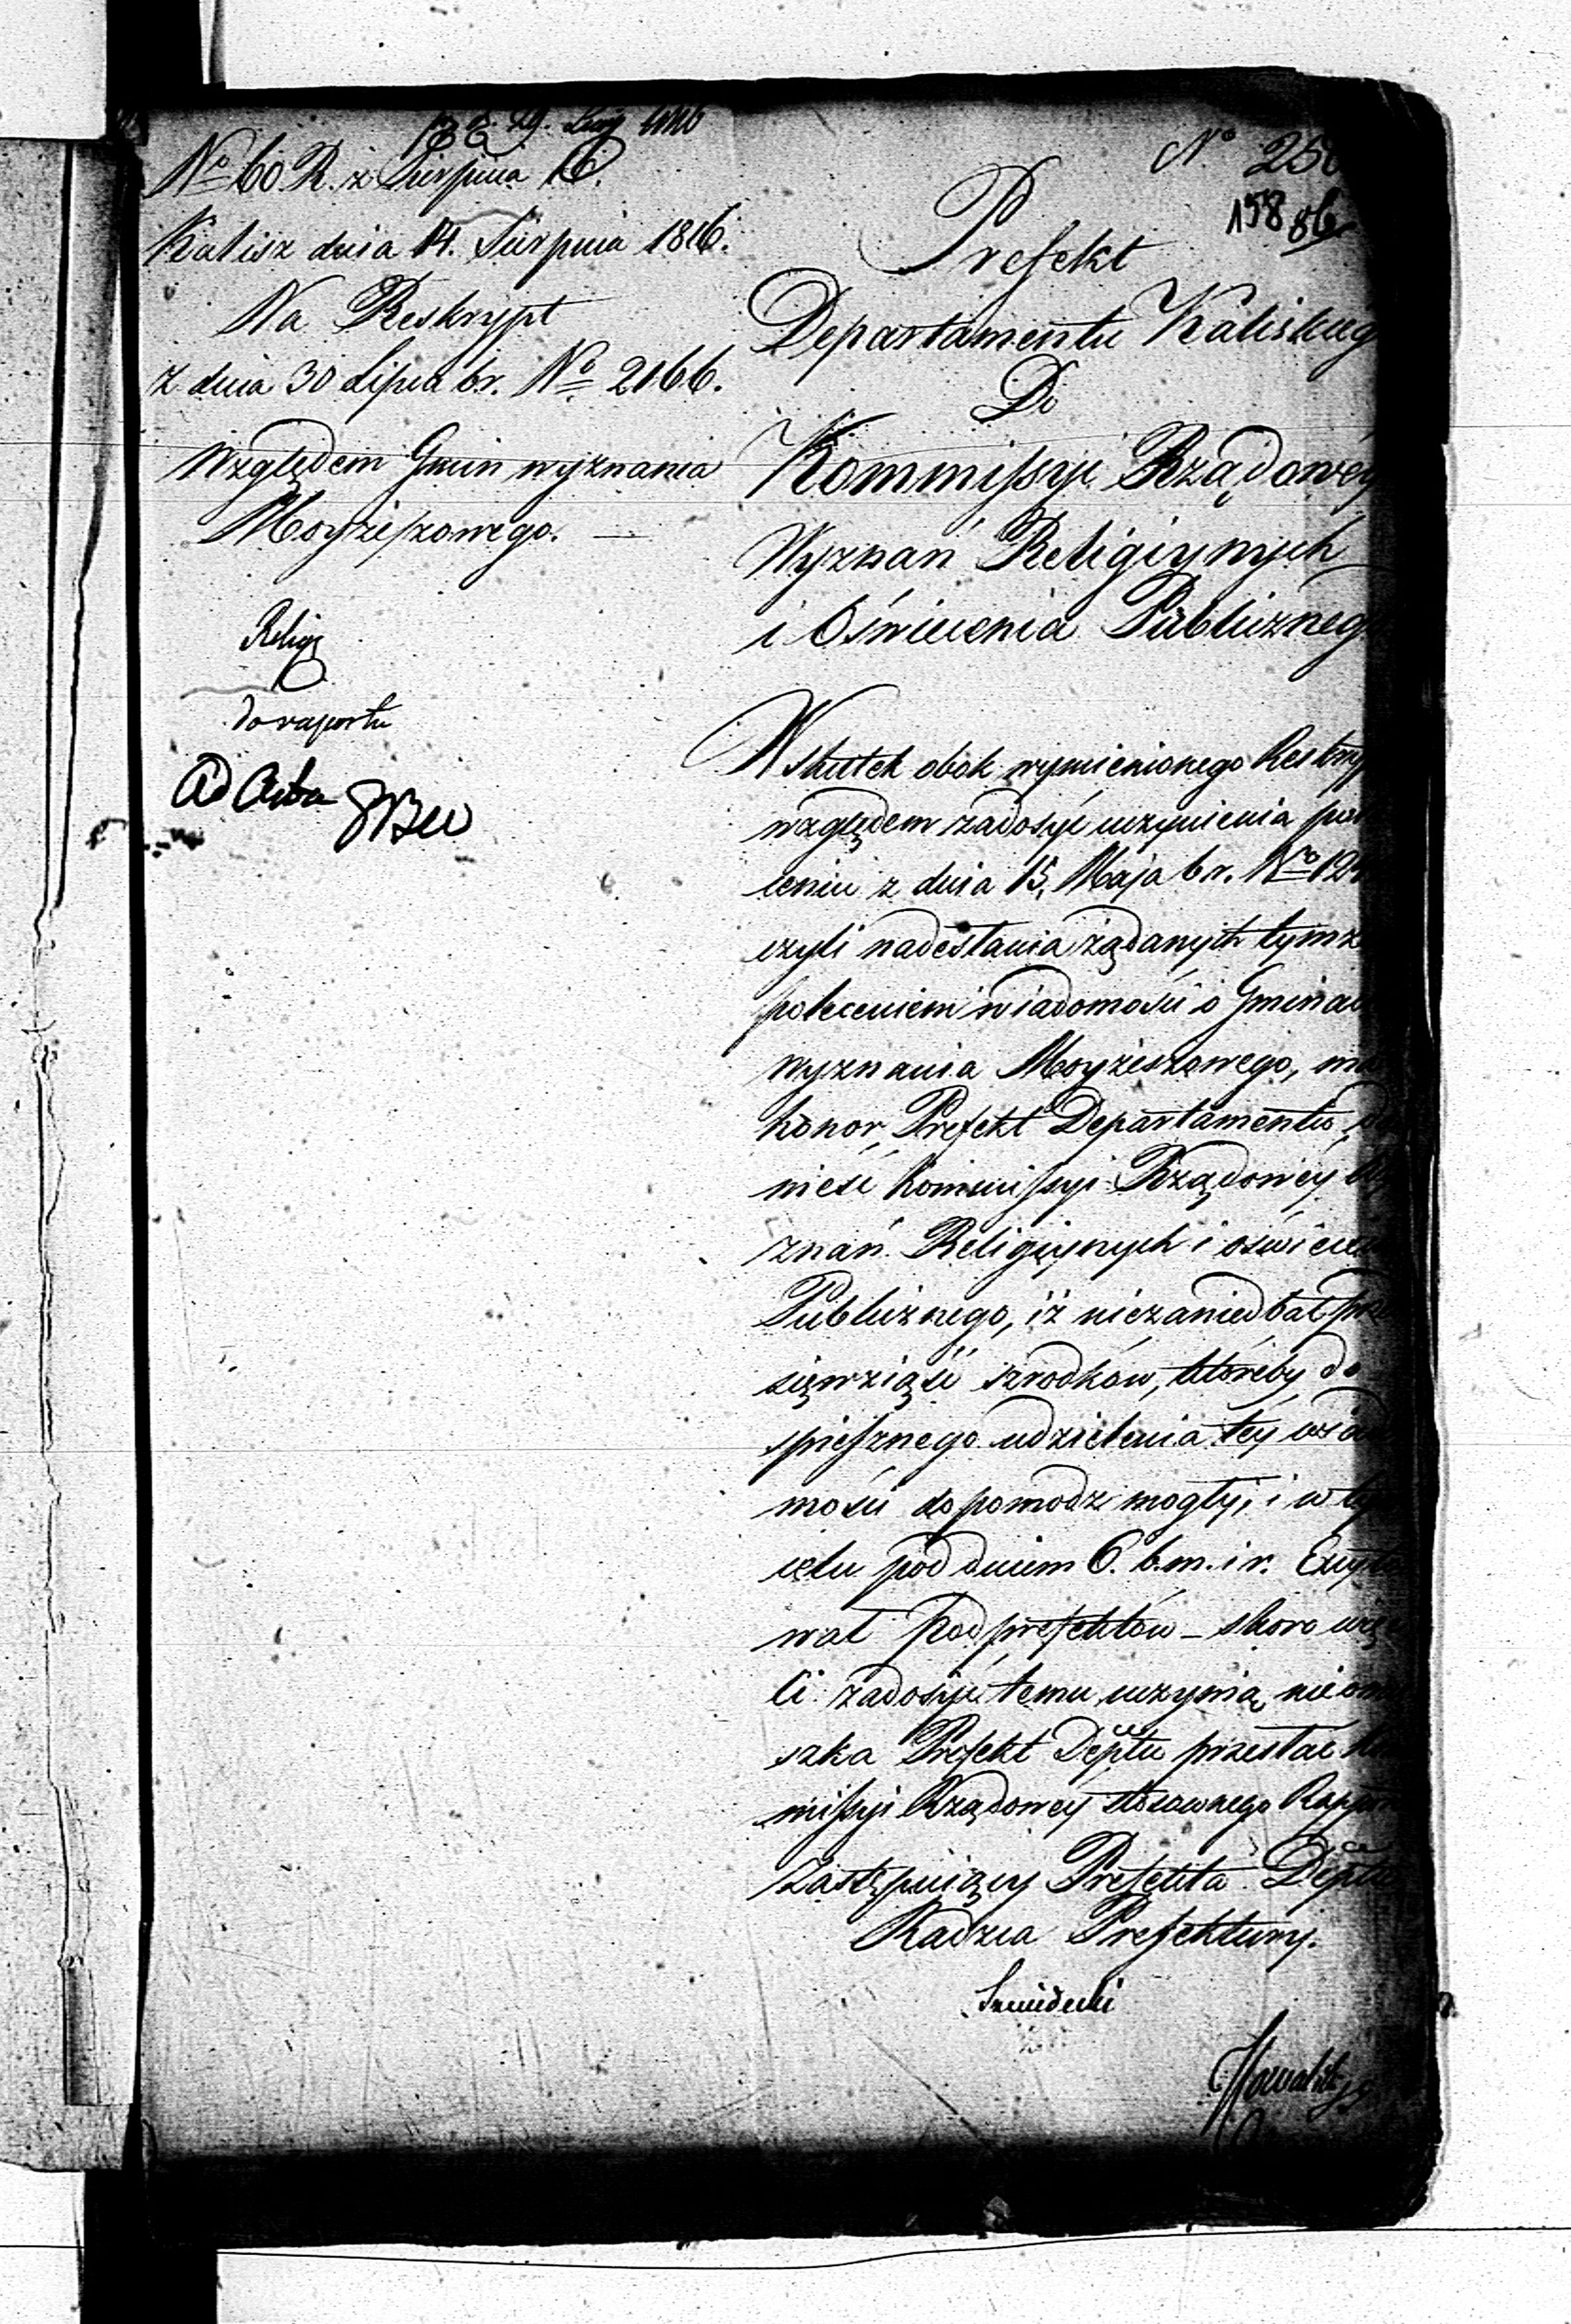 No 60 R. z Sierpnia 16.
Kalisz dnia 14. Sierpnia 1816.
Na Reskrypt
z dnia 30 Lipca b.r. No 2166.
Względem Gmin wyznania
Moyżeszowego. —
Relig
do raportu
Ad Acta
No 25
158 86
Prefekt
Departamentu Kaliskieg
Do
Kommissyi Rządowéy
Wyznań Religiynych
i Oświecenia Publiczneg
W skutek obok wymienionego Reskryp
względem zadosyć uczynienia pole
ceniu z dnia 15. Maja b.r. No 12
czyli nadesłania żądanych tymże
poleceniem wiadomości o Gminac
wyznania Moyżeszowego, ma
honor Prefekt Departamentu do
nieść Kommissyi Rządowéy Wy
znań Religiynych i oświecen
Publicznego, iż niezaniedbał prze
sięwziąść szrodków, któreby do
spiesznego udzielenia téy wiado
mości dopomodz mogły, i w ty
celu pod dniem 6. b.m. i r. Excyto
wał Podprefektów – skoro więc
Ci zadosyć temu uczynią, nieomie
szka Prefekt Deptu przesłać Kom
missyi Rządowéy stosownego Rappor
Zastępuiący Prefekta Deptu
Radzca Prefektury.